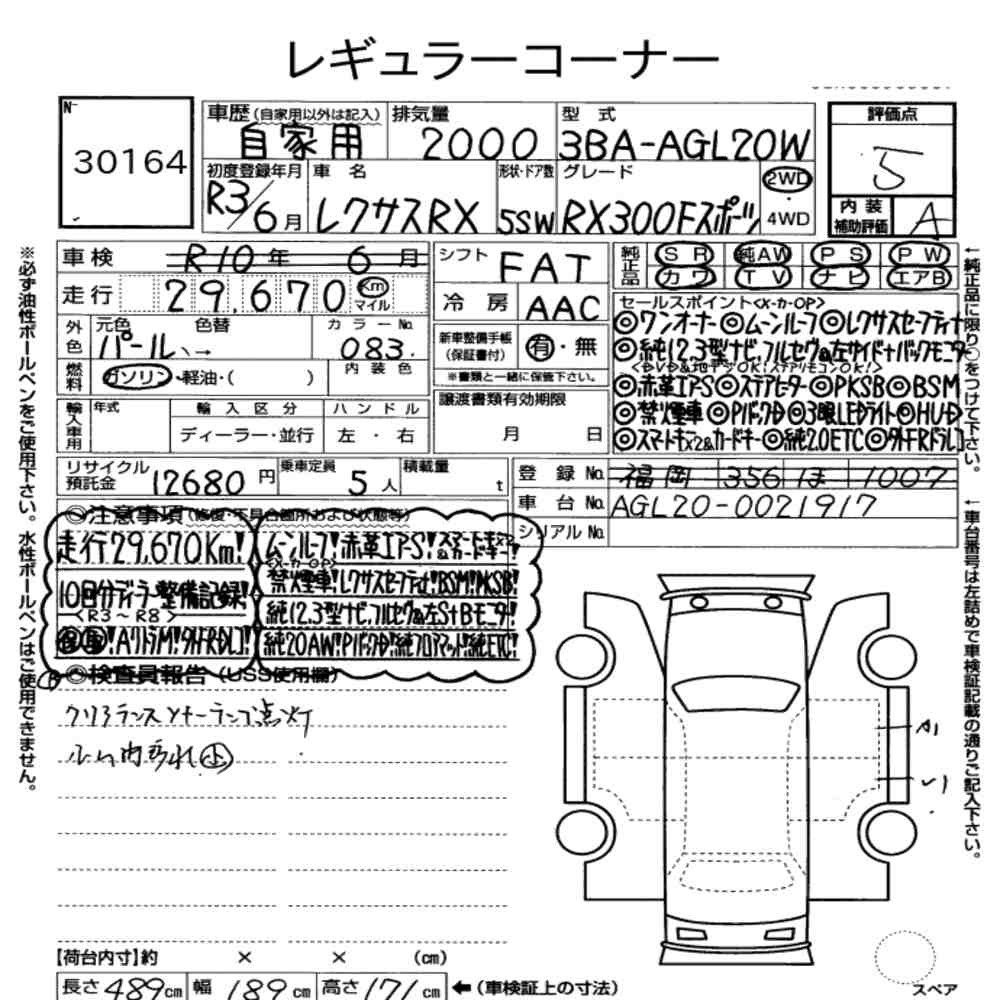 レギュラーコーナー
№ 30164
車歴(自家用以外は記入) 自家用
排気量 2000
型式 3BA-AGL20W
評価点 5
初度登録年月 R3/6月
車名 レクサスRX
形状・ドア数 5SW
グレード RX300Fスポーツ
2WD
4WD
内装補助評価 A
車検 R10年 6月
走行 29,670 Km マイル
シフト FAT
冷房 AAC
純正品 SR 純AW PS PW
カワ TV ナビ エアB
外色 元色 パール 色替 →
カラーNo. 083
燃料 ガソリン・軽油・( )
内装色
新車整備手帳(保証書付) 有・無
※書類と一緒に保管下さい。
セールスポイント<メーカーOP>
◎ワンオーナー◎ムーンルーフ◎レクサスセーフティ+
◎純12.3型ナビ,フルセグ&左サイド+バックモニター
<DVD&地デジOK!ステアリモコンOK!>
◎赤革エアS◎ステアヒーター◎PKSB◎BSM
◎禁煙車◎Pバックドア◎3眼LEDライト◎HUD
◎スマートキーx2&カードキー◎純2.0ETC◎外FRドラレコ
輸入車用 年式 輸入区分 ハンドル
ディーラー・並行 左・右
譲渡書類有効期限
月 日
リサイクル預託金 12680円
乗車定員 5人
積載量 t
登録No. 福岡 356 ほ 1007
車台No. AGL20-0021917
シリアルNo.
◎注意事項(修復・不具合箇所および状態等)
走行29,670Km!
10回分ディーラー整備記録!
<R3~R8>
保取!Aクリム!外FRDレコ!
ムーンルーフ!赤革エアーS!スマートキーx2&カードキー!
<メーカーOP>
禁煙車!レクサスセーフティ+!BSM!PKSB!
純12.3型ナビ,フルセグ&左S+Bモニター!
純20AW!Pバックドア!純フロアマット!純ETC!
◎検査員報告(USS使用欄)
クリアランスソナーランプ点灯
ルーム内汚れ小
A1
U1
【荷台内寸】約 × × (cm)
長さ489cm 幅189cm 高さ171cm ←(車検証上の寸法)
スペア
※必ず油性ボールペンをご使用下さい。水性ボールペンはご使用できません。
←純正品に限り○をつけて下さい。
←車台番号は左詰めで車検証記載の通りご記入下さい。